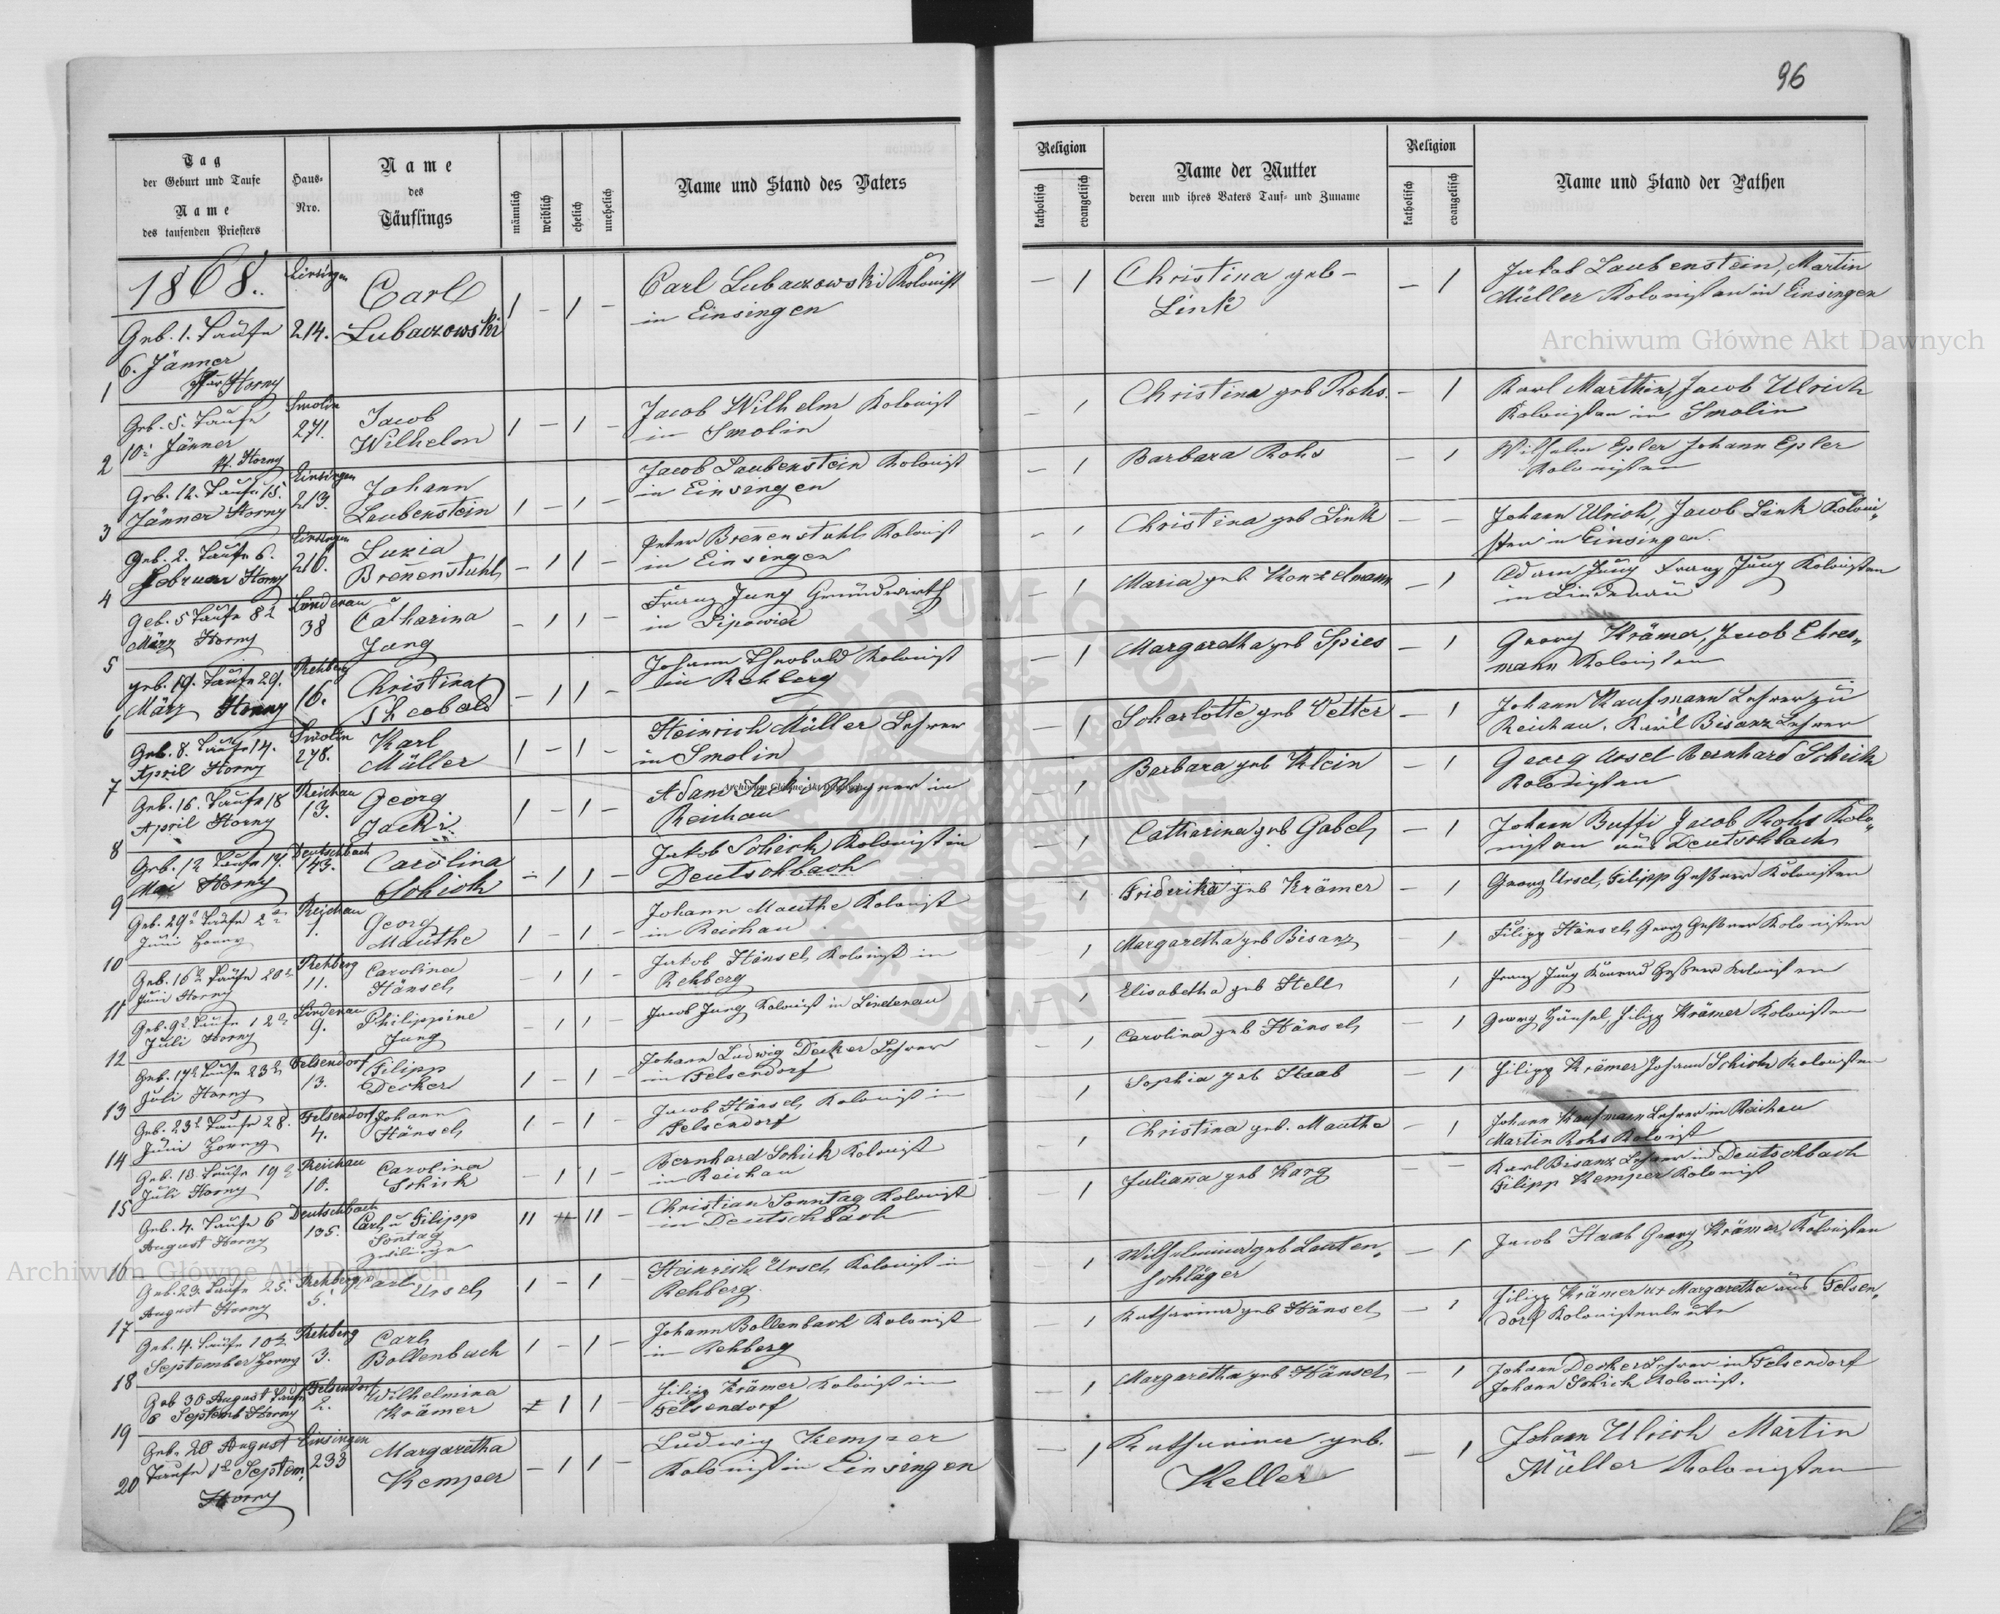 96
Tag
der Geburt und Taufe
Name
des taufenden Priesters
Haus-
Nro.
Name
des
Täuflings
männlich
weiblich
ehelich
unehelich
Name und Stand des Vaters
Religion
katholisch
evangelisch
Name der Mutter
deren und ihres Vaters Tauf- und Zuname
Religion
katholisch
evangelisch
Name und Stand der Pathen
1868.
1
Geb. 1. Taufe
6. Jänner
Horny
Einsingen
214.
Carl
Lubaczowski
1 – 1 –
Carl Lubaczowski Kolonist
in Einsingen
– 1
Christina geb
Link
– 1
Jakob Laubenstein, Martin
Müller Kolonisten in Einsingen
2
Geb. 5. Taufe
10. Jänner
Horny
Smolin
271.
Jacob
Wilhelm
1 – 1 –
Jacob Wilhelm Kolonist
in Smolin
– 1
Christina geb Rohs.
– 1
Karl Marthin, Jacob Ulrich
Kolonisten in Smolin
3
Geb. 12. Taufe 15.
Jänner Horny
Einsingen
213.
Johann
Laubenstein
1 – 1 –
Jacob Laubenstein Kolonist
in Einsingen
– 1
Barbara Rohs
– 1
Wilhelm Epler Johann Epler
Kolonisten
4
Geb. 2. Taufe 6.
Februar Horny
Einsingen
216.
Luzia
Brenenstuhl
– 1 1 –
Peter Brenenstuhl Kolonist
in Einsingen
– 1
Christina geb Link
– –
Johann Ulrich, Jacob Link Koloni-
sten in Einsingen.
5
Geb. 5 Taufe 8
März Horny
Lindenau
38
Catharina
Jung
– 1 1 –
Franz Jung Grundwirth
in
– 1
Maria geb Konzelmann
– 1
Adam Jung Franz Jung Kolonisten
in Lindenau
6
geb. 19. Taufe 29.
März Horny
Rehberg
16.
Christina
Theobald
– 1 1 –
Johann Theobald Kolonist
in Rehberg
– 1
Margaretha geb Spies
– 1
Georg Krämer, Jacob Ehres-
mann Kolonisten
7
Geb. 8. Taufe 14.
April Horny
Smolin
278.
Karl
Müller
1 – 1 –
Heinrich Müller Lehrer
in Smolin
– 1
Scharlotte geb Vetter
– 1
Johann Kaufmann Lehrer zu
Reichau. Karl Bisanz Lehrer
8
Geb. 16. Taufe 18
April Horny
Reichau
13.
Georg
Jacki
1 – 1 –
Adam Jacki in
Reichau
– 1
Barbara geb Klein
– 1
Georg Ursel Bernhard Schick
Kolonisten
9
Geb. 12 Taufe
Mai Horny
Deutschbach
143.
Carolina
Schick
– 1 1 –
Jakob Schick Kolonist in
Deutschbach
– 1
Catharina geb Gabel
– 1
Johann Buffi Jacob Rohs Kolo-
nisten aus Deutschbach
10
Geb. 29 Taufe 2
Juni Horny
Reichau
1.
Georg
Mauthe
1 – 1 –
Johann Mauthe Kolonist
in Reichau
1
Friderika geb Krämer
– 1
Georg Ursel, Filipp Geßner Kolonisten
11
Geb. 16 Taufe 20
Juni Horny
Rehberg
11.
Carolina
Hänsel
– 1 1 –
Jakob Hänsel Kolonist in
Rehberg
1
Margaretha geb Bisanz
1
Filipp Hänsel, Georg Geßner Kolonisten
12
Geb. 9. Taufe 12
Juli Horny
Lindenau
9.
Philippine
Jung
– 1 1 –
Jacob Jung Kolonist in Lindenau
– 1
Elisabetha geb Stell
1
Franz Jung Konrad Geßner Kolonisten
13
Geb. 17 Taufe 23
Juli Horny
Felsendorf
13.
Filipp
Decker
1 – 1 –
Johann Ludwig Decker Lehrer
in Felsendorf
– 1
Carolina geb Hänsel
– 1
Georg Hänsel, Filipp Krämer Kolonisten
14
Geb. 23 Taufe 28.
Juni Horny
Felsendorf
4.
Johann
Hänsel
1 – 1 –
Jacob Hänsel Kolonist in
Felsendorf
1
Sophia geb Staab
– 1
Filipp Krämer Johann Schick Kolonisten
15
Geb. 13 Taufe 19
Juli Horny
Reichau
10.
Carolina
Schick
– 1 1 –
Bernhard Schick Kolonist
in Reichau
– 1
Christina geb. Mauthe
– 1
Johann Kaufmann Lehrer in Reichau
Martin Rohs Kolonist
16
Geb. 4. Taufe 6
August Horny
Deutschbach
135.
Carl u Filipp
Sontag
Zwillinge
11 11 –
Christian Sonntag Kolonist
in Deutschbach
– 1
Julianna geb Karg
– –
Karl Bisanz Lehrer in Deutschbach
Filipp Kemper Kolonist
17
Geb. 23. Taufe 25.
August Horny
Rehberg
5.
Carl
Ursel
1 – 1 –
Heinrich Ursel Kolonist in
Rehberg.
1
Wilhelmina geb Lauten-
schläger
– 1
Jacob Staab Georg Krämer Kolonisten
18
Geb. 4. Taufe 10
September Horny
Rehberg
3.
Carl
Bollenbach
1 – 1 –
Johann Bollenbach Kolonist
in Rehberg
– 1
Katharina geb Hänsel
– 1
Filipp Krämer u Margaretha aus Felsen-
dorf Kolonistenleute
19
Geb 30 August Taufe
6 Septemb Horny
Felsendorf
2.
Wilhelmina
Krämer
1 1 –
Filipp Krämer Kolonist in
Felsendorf
– 1
Margaretha geb Hänsel
– 1
Johann Decker Lehrer in Felsendorf
Johann Schick Kolonist.
20
Geb. 20 August
Taufe 1 Septem.
Horny
Einsingen
233
Margaretha
Kemper
– 1 1 –
Ludwig Kemper
Kolonist in Einsingen
– 1
Katharina geb.
Keller
– 1
Johann Ulrich Martin
Müller Kolonisten
Archiwum Główne Akt Dawnych
Archiwum Główne Akt Dawnych
Archiwum Główne Akt Dawnych